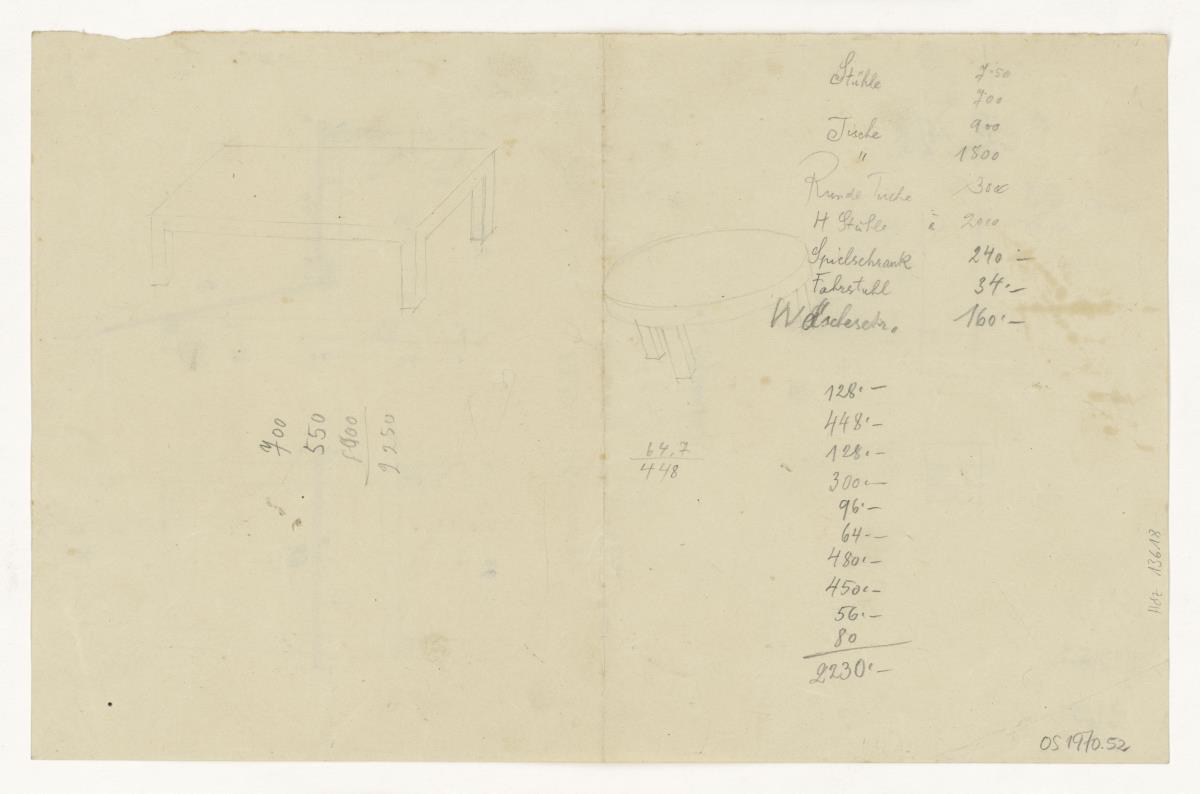 Stühle 7·50
700
Tische 900
" 1800
Runde Tische 300
H Stühle à 2000
Spielschrank 240.—
Fahrstuhl 34.—
Wäscheschr. 160.—
128.—
448.—
128.—
300.—
96.—
64.—
480.—
450.—
56.—
80
2230.—
64,7
448
700
550
2250
Hdz 13618
OS 1970.52